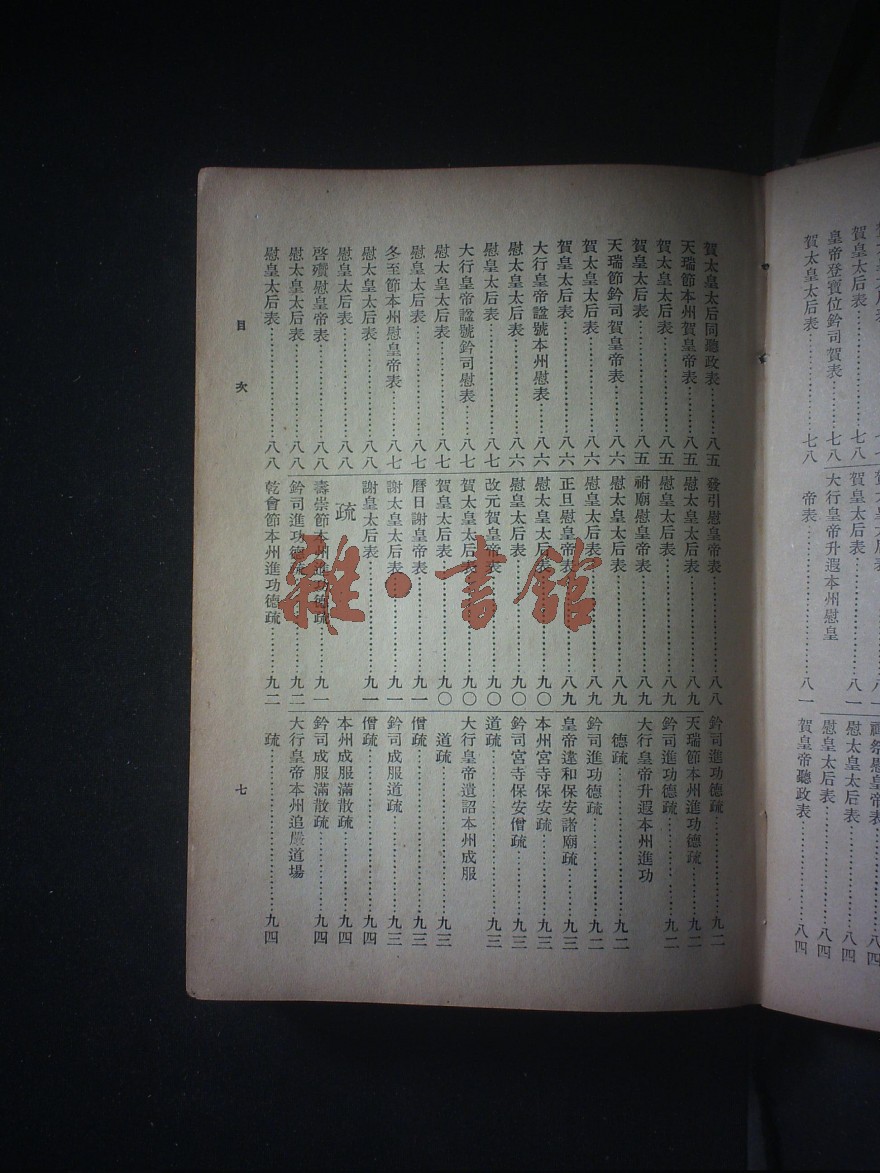 賀皇太后表……七八
皇帝登寶位鈐司賀表……七八
賀太皇太后表……七八
賀皇太后表……八一
大行皇帝升遐本州慰皇
帝表……八一
慰太皇太后表……八四
慰皇太后表……八四
賀皇帝聽政表……八四
賀太皇太后同聽政表……八五
天瑞節本州賀皇帝表……八五
賀太皇太后表……八五
賀皇太后表……八五
天瑞節鈐司賀皇帝表……八六
賀太皇太后表……八六
賀皇太后表……八六
大行皇帝諡號本州慰表……八六
慰太皇太后表……八六
慰皇太后表……八七
大行皇帝諡號鈐司慰表……八七
慰太皇太后表……八七
慰皇太后表……八七
冬至節本州慰皇帝表……八七
慰太皇太后表……八八
慰皇太后表……八八
啓殯慰皇帝表……八八
慰太皇太后表……八八
慰皇太后表……八八
發引慰皇帝表……八八
慰太皇太后表……八九
慰皇太后表……八九
祔廟慰皇帝表……八九
慰太皇太后表……八九
慰皇太后表……八九
正旦慰皇帝表……八九
慰太皇太后表……九〇
慰皇太后表……九〇
改元賀皇帝表……九〇
賀太皇太后表……九〇
賀皇太后表……九〇
曆日謝皇帝表……九一
謝太皇太后表……九一
謝皇太后表……九一
疏
壽崇節本州進功德疏……九一
鈐司進功德疏……九二
乾會節本州進功德疏……九二
鈐司進功德疏……九二
天瑞節本州進功德疏……九二
鈐司進功德疏……九二
大行皇帝升遐本州進功
德疏……九二
鈐司進功德疏……九二
皇帝違和保安諸廟疏……九三
本州宮寺保安疏……九三
鈐司宮寺保安僧疏……九三
道疏……九三
大行皇帝遺詔本州成服
道疏……九三
僧疏……九三
鈐司成服道疏……九三
僧疏……九四
本州成服滿散疏……九四
鈐司成服滿散疏……九四
大行皇帝本州追嚴道場
疏……九四
目次
七
雜·書館